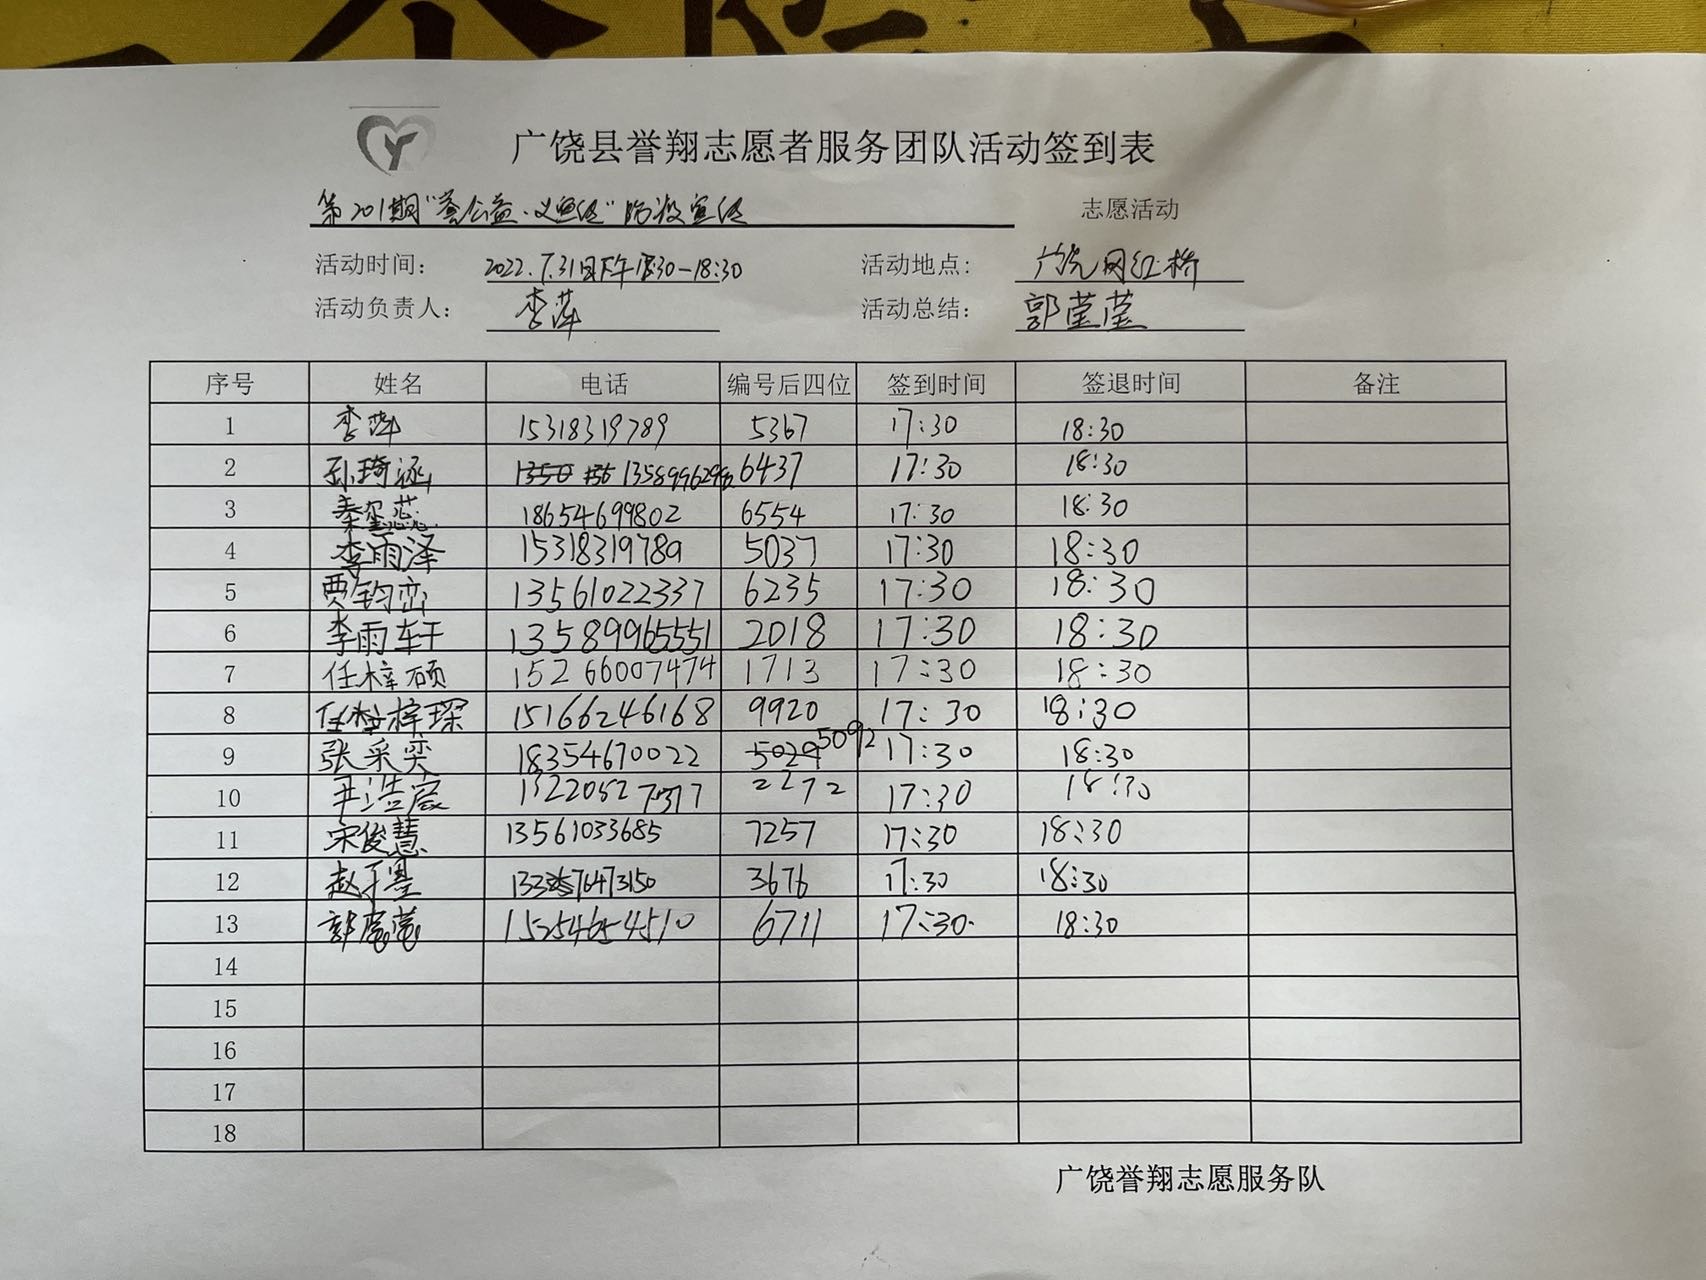 广饶县誉翔志愿者服务团队活动签到表
第201期"荟公益·义宣传"防疫宣传 志愿活动
活动时间： 2022.7.31日下午17:30-18:30 活动地点： 广饶网红桥
活动负责人： 李萍 活动总结： 郭莹莹
序号 姓名 电话 编号后四位 签到时间 签退时间 备注
1 李萍 15318319789 5367 17:30 18:30
2 孙琦涵 6437 17:30 18:30
3 秦玺蕊 18654699802 6554 17:30 18:30
4 李雨泽 15318319789 5037 17:30 18:30
5 贾钧峦 13561022337 6235 17:30 18:30
6 李雨轩 13589965551 2018 17:30 18:30
7 任梓硕 15266007474 1713 17:30 18:30
8 任梓琛 15166246168 9920 17:30 18:30
9 张采奕 18354670022 5092 17:30 18:30
10 2272 17:30 18:30
11 宋俊慧 13561033685 7257 17:30 18:30
12 3676 17:30 18:30
13 郭莹莹 15254654510 6711 17:30 18:30
14
15
16
17
18
广饶誉翔志愿服务队